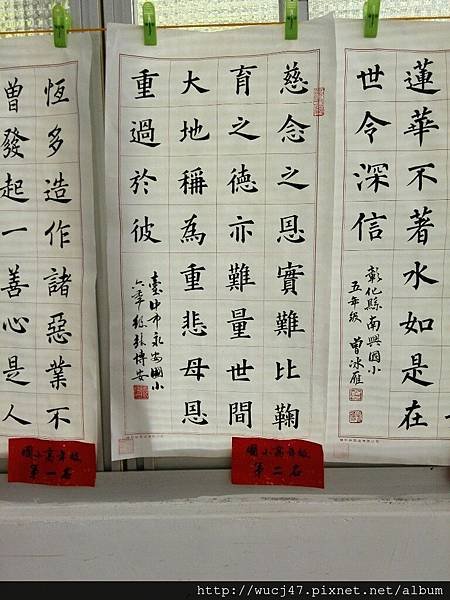 蓮華不著水如是在
世令深信
彰化縣南興國小
五年級 曾冰雁
慈念之恩實難比鞠
育之德亦難量世間
大地稱為重悲母恩
重過於彼
臺中市永安國小
六年級張博安
恆多造作諸惡業不
曾發起一善心是人
國小高年級
第二名
國小高年級
第一名
http://wucj47.pixnet.net/album